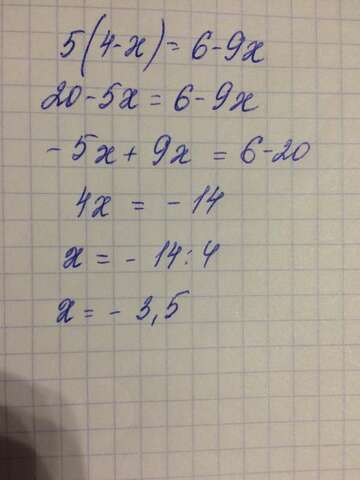 5(4-x)=6-9x
20-5x=6-9x
-5x+9x=6-20
4x=-14
x=-14:4
x=-3,5